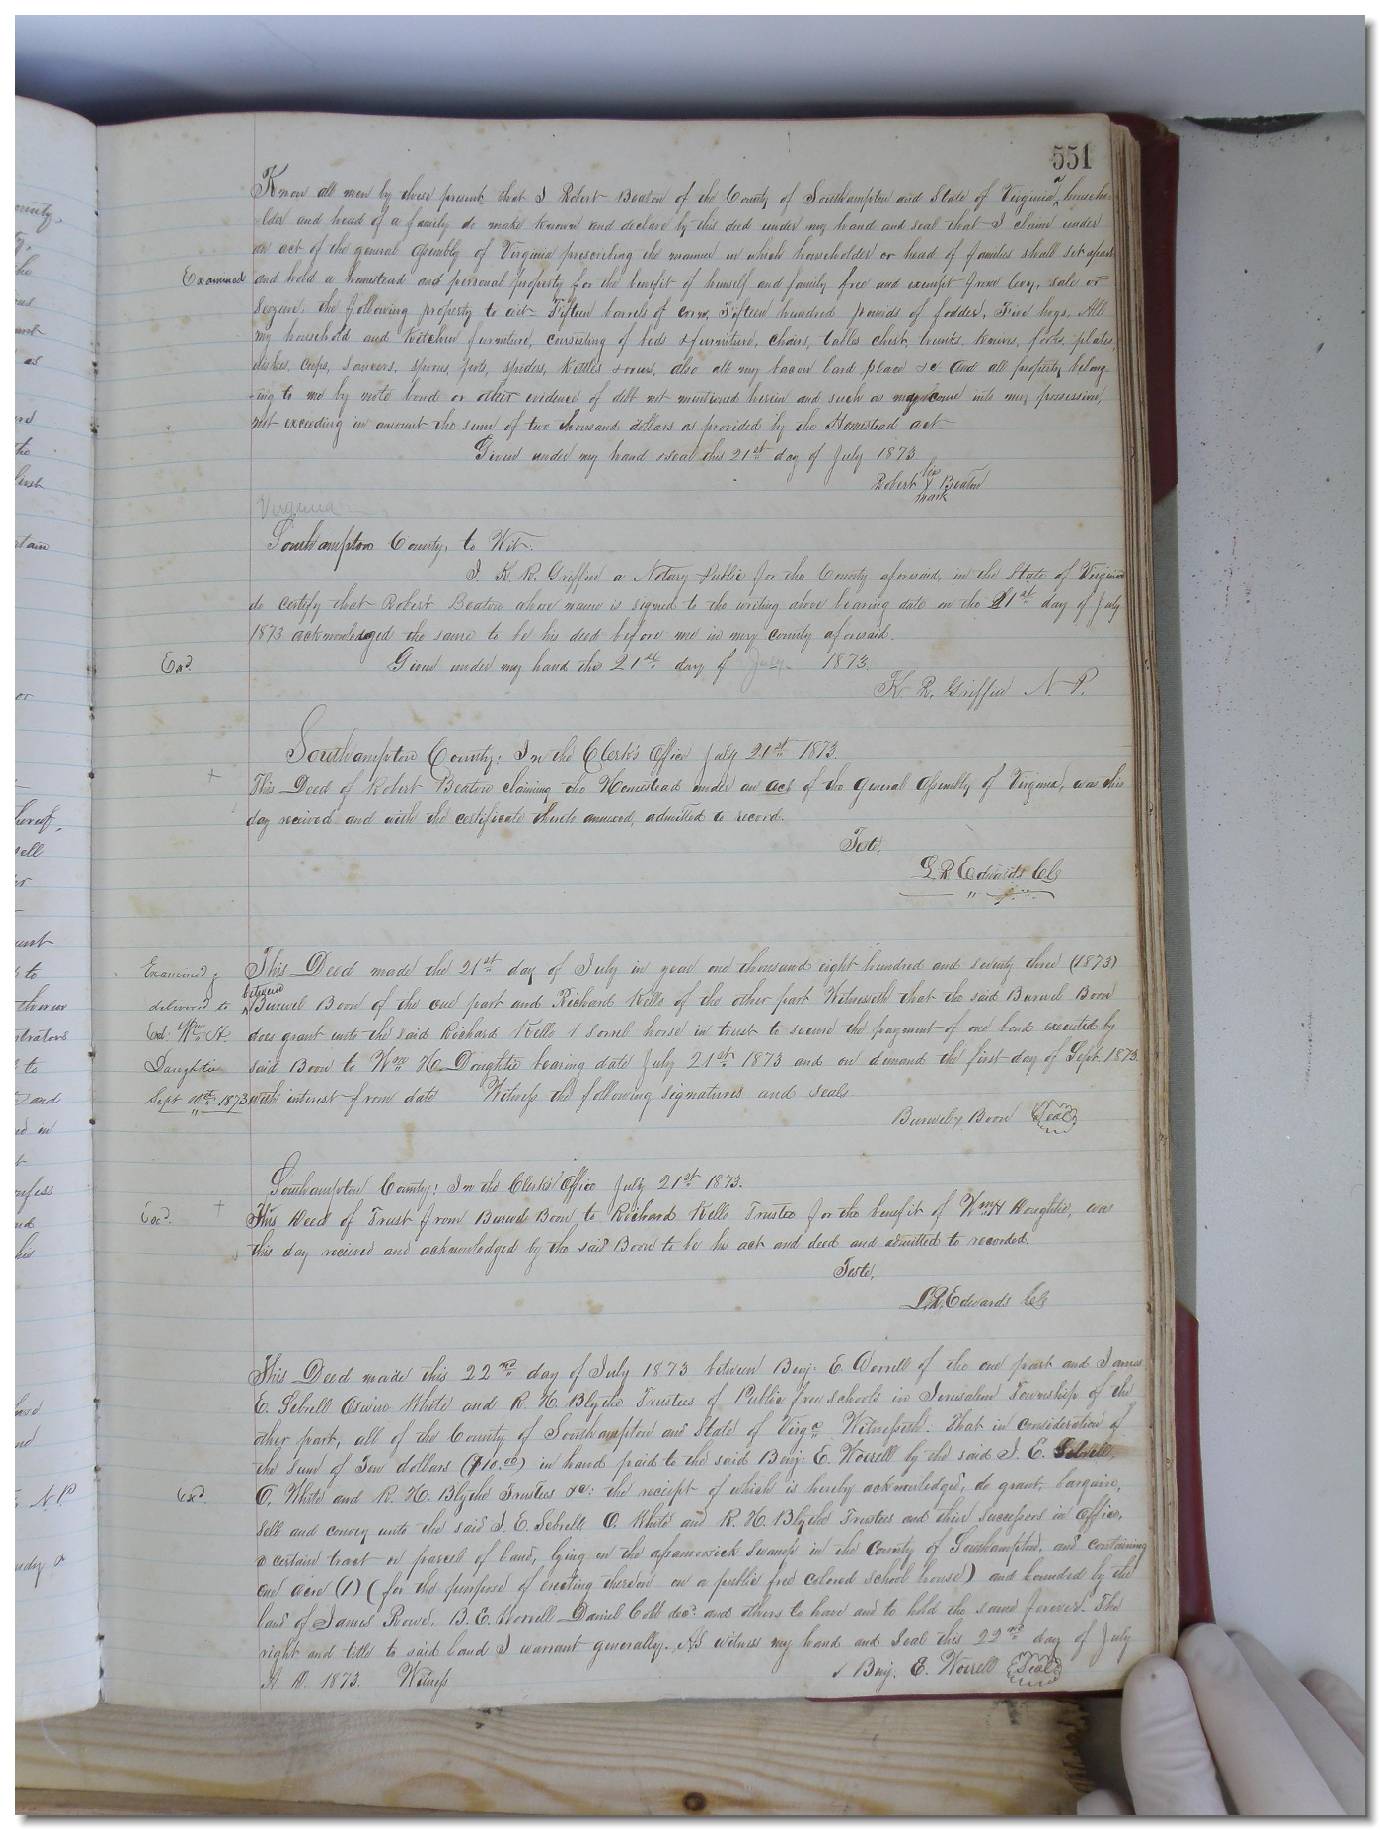 551
Know all men by these present that I Robert Beaton of the County of Southampton and State of Virginia a househo-
lder and head of a family do make known and declare by this deed under my hand and seal that I claim under
an act of the general assembly of Virginia prescribing the manner in which householder or head of families shall set apart
Examined and hold a homestead and personal property for the benefit of himself and family free and exempt from levy, sale or
Seizure, the following property to wit Fifteen barrels of corn, Fifteen hundred pounds of fodder, Five hogs, All
my household and Kitchen furniture, consisting of beds & furniture, chairs, tables chest, trunks, knives, forks, plates,
dishes, cups, saucers, spoons, pots, spiders, Kettles & ovens, also all my bacon lard &c and all property belong-
-ing to me by note bond or other evidence of debt not mentioned herein and such as may come into my possession,
not exceeding in amount the sum of two thousand dollars as provided by the Homestead act
Given under my hand & seal this 21st day of July 1873
his
Robert X Beaton
mark
Virginia
Southampton County, to Wit.
I. K. R. Griffin a Notary Public for the County aforesaid, in the State of Virginia
do certify that Robert Beaton above name is signed to the writing above bearing date on the 21st day of July
1873 acknowledged the same to be his deed before me in my county aforesaid.
Exd. Given under my hand the 21st day of July 1873.
K. R. Griffin N. P.
Southampton County: In the Clerk's Office July 21st 1873.
This Deed of Robert Beaton claiming the Homestead under an act of the General Assembly of Virginia, was this
day received and with the certificate thereto annexed, admitted to record.
Teste.
L. R. Edwards Clk
Examined & This Deed made the 21st day of July in year one thousand eight hundred and seventy three (1873)
between
delivered to Burwel Boon of the one part and Richard Kello of the other part Witnesseth that the said Burwel Boon
Wm H. does grant unto the said Richard Kello 1 sorrel horse in trust to secure the payment of one bond executed by
Daughtrie said Boon to Wm H. Doughtie bearing date July 21st 1873 and on demand the first day of Sept. 1873.
Sept 1873 with interest from date Witness the following signatures and seals
Burwel X Boon Seal
Southampton County: In the Clerk's Office July 21st 1873.
Exd. This Deed of Trust from Burwel Boon to Richard Kello Trustee for the benefit of Wm H Doughtie, was
this day received and acknowledged by the said Boon to be his act and deed and admitted to recorded.
Teste,
L. R. Edwards Clk
This Deed made this 22nd day of July 1873 between Benj. E. Worrell of the one part and James
E. Sebrell Oswin White and R. H. Blythe Trustees of Public free schools in Jerusalem Township of the
other part, all of the County of Southampton and State of Virga Witnesseth: That in consideration of
the sum of Ten dollars ($10.00) in hand paid to the said Benj. E. Worrell by the said J. E. Sebrell,
Exd. O. White and R. H. Blythe Trustees &c: the receipt of which is hereby acknowledged, do grant, bargain,
Sell and convey unto the said J. E. Sebrell O. White and R. H. Blythe Trustees and their successors in office,
a certain tract or parcel of land, lying on the swamp in the County of Southampton, and containing
one acre (1) (for the purpose of erecting thereon on a public free colored school house) and bounded by the
land of James Rowe, B. E. Worrell Daniel Cobb decd. and others to have and to hold the same forever. The
right and title to said land I warrant generally. As witness my hand and Seal this 22nd day of July
A. D. 1873. Witness Benj. E. Worrell Seal